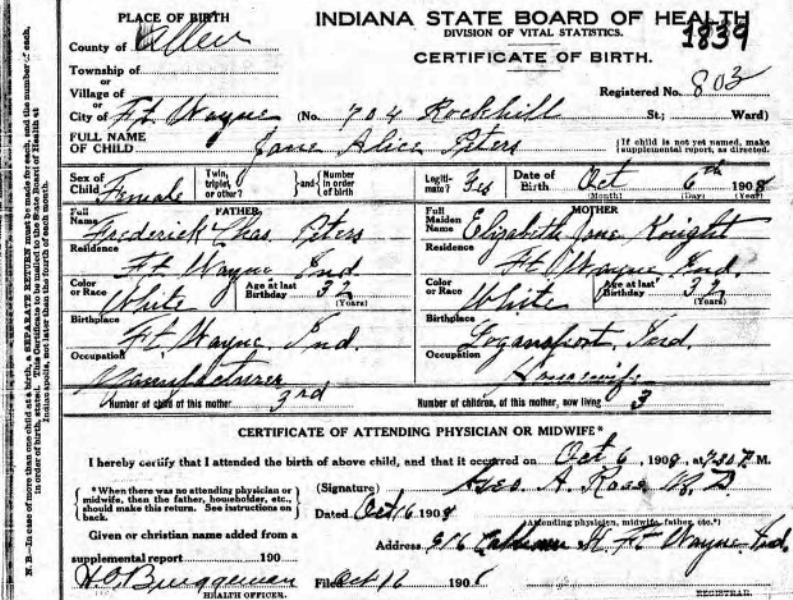 PLACE OF BIRTH
INDIANA STATE BOARD OF HEALTH
DIVISION OF VITAL STATISTICS.
1839
County of Allen
CERTIFICATE OF BIRTH.
Township of
or
Village of
Registered No. 803
or
City of Ft. Wayne (No. 704 Rockhill St.; Ward)
FULL NAME
OF CHILD Jane Alice Peters
{If child is not yet named, make
supplemental report, as directed.
Sex of
Child Female
Twin,
triplet,
or other?
}and{
Number
in order
of birth
Legiti-
mate? Yes
Date of
Birth Oct 6th 1908
(Month) (Day) (Year)
FATHER
Full
Name Frederick Chas. Peters
Residence
Ft. Wayne Ind.
Color
or Race White
Age at last
Birthday 32
(Years)
Birthplace
Ft. Wayne. Ind.
Occupation
Manufacturer
MOTHER
Full
Maiden
Name Elizabeth Jane Knight
Residence
Ft Wayne Ind.
Color
or Race White
Age at last
Birthday 32
(Years)
Birthplace
Logansport. Ind.
Occupation
Housewife
Number of child of this mother 3rd
Number of children, of this mother, now living 3
CERTIFICATE OF ATTENDING PHYSICIAN OR MIDWIFE*
I hereby certify that I attended the birth of above child, and that it occurred on Oct 6, 1908, at 730 P. M.
{*When there was no attending physician or
midwife, then the father, householder, etc.,
should make this return. See instructions on
back.}
(Signature) Geo. A. Ross M. D
Dated Oct 16 1908
(Attending physician, midwife, father, etc.*)
Given or christian name added from a
supplemental report 190
Address 916 Calhoun St Ft Wayne. Ind.
H.O. Bruggeman
HEALTH OFFICER.
Filed Oct 16 1908
REGISTRAR.
N. B—In case of more than one child at a birth, a SEPARATE RETURN must be made for each, and the number of each,
in order of birth, stated. This Certificate to be mailed to the State Board of Health at
Indianapolis, not later than the fourth of each month.